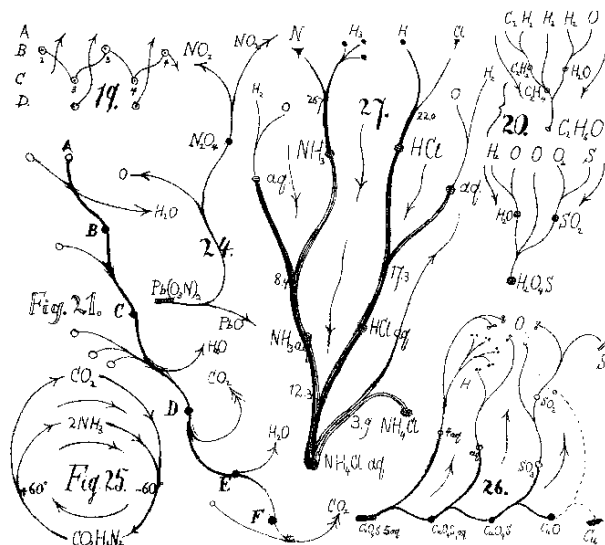 A
B
C
D.
2
3
3
4
4
19.
NO₂
NO₂
N₂O₄
O
24.
Pb(O₃N)₂
PbO
A
H₂O
B
Fig. 21.
C
H₂O
CO₂
D
H₂O
E
F
CO₂
CO₂
2NH₃
Fig 25.
+60°
-60
N
H₃
H
Cl
H₂
O
27.
22.0
NH₃
HCl
H₂
O
aq
aq.
8.4
17.3
NH₃aq
HCl aq
12.3
3.9
NH₄Cl
NH₄Cl aq
C₂ H₂ H₂ O
C₂H₂
H₂O
C₂H₄
20.
C₂H₆O
H₂ O O O₂ S
H₂O
SO₂
H₂O₄S
O
S
H
SO₂
4aq
aq
SO₃
26.
CuO₄S 5aq
CuO₄S aq
CuO₄S
CuO
Cu